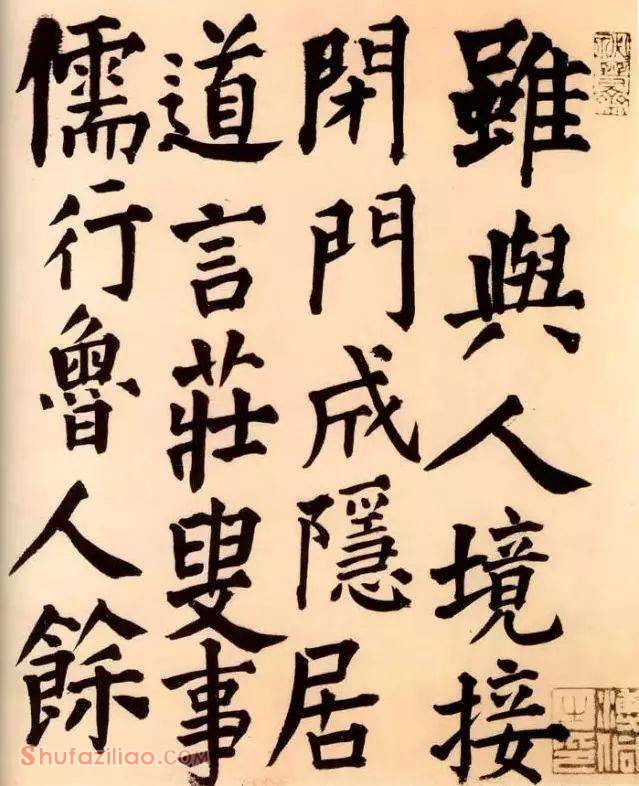 雖與人境接
閉門成隱居
道言莊叟事
儒行魯人餘
Shufaziliao.com